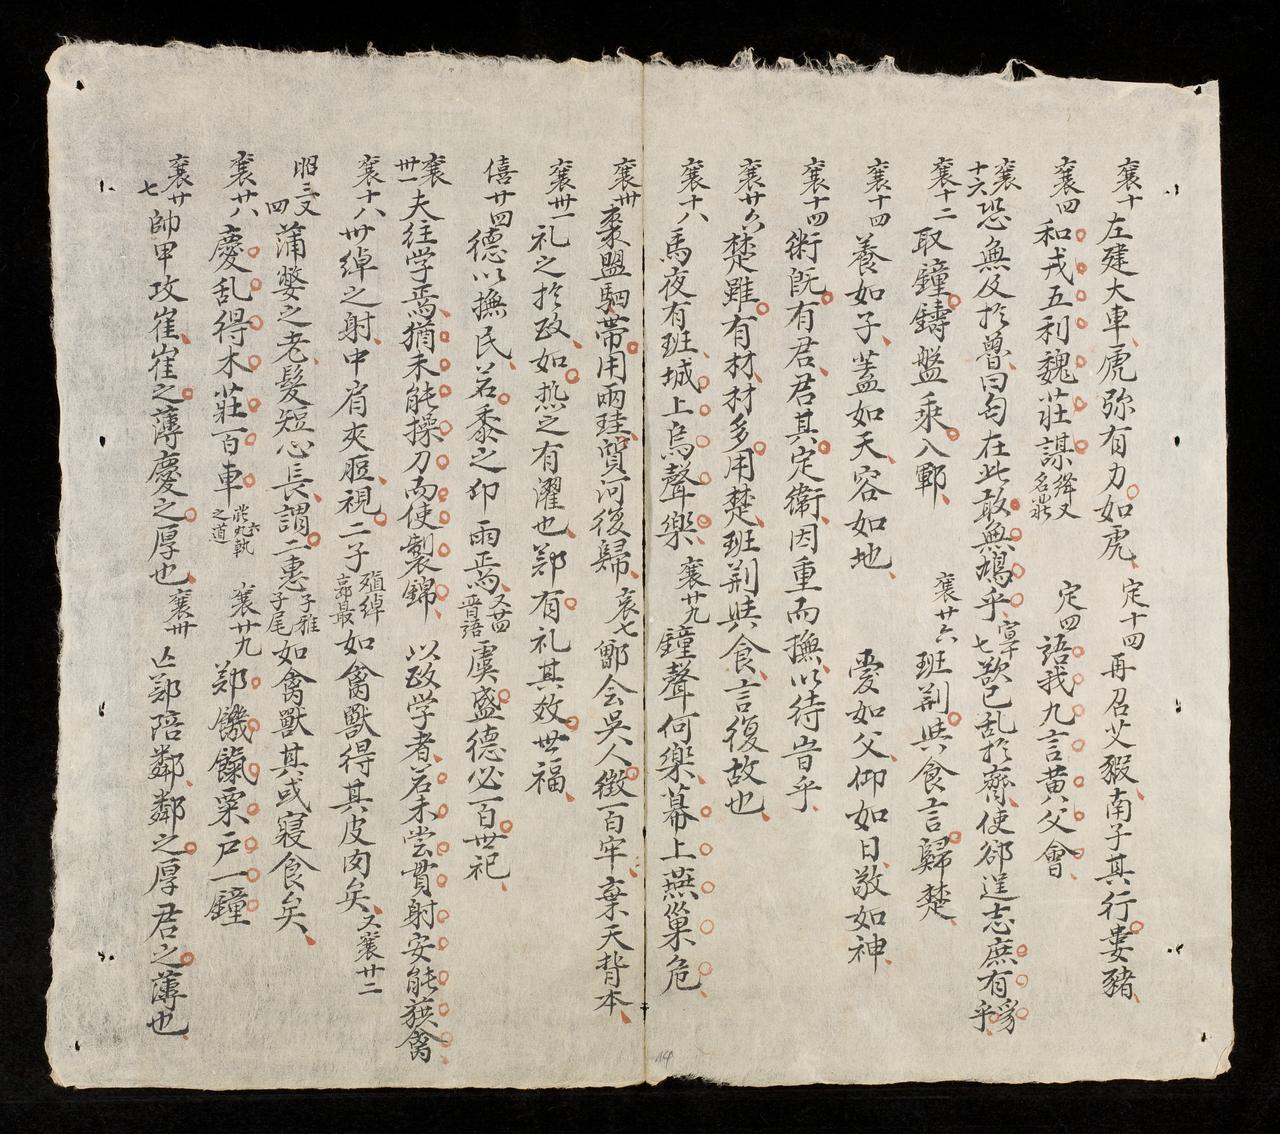 襄十左建大車虎弥有力如虎 定十四再召艾豭南子其行婁豬
襄四和戎五利魏莊謀絳又名莊 定四語我九言黄父會
襄十六恐無及於魯曰匄在此敢無鳩乎 宣十七欲已乱於齊使郤逞志庶有豸乎
襄十二取鐘鑄盤乘入鄆 襄廿六班荆與食言歸楚
襄十四養如子蓋如天容如地 愛如父仰如日敬如神
襄十四衎既有君君其定衛因重而撫以待旹乎
襄廿六楚雖有材材多用楚班荆與食言復故也
襄十八馬夜有班城上烏聲樂 襄廿九鐘聲何樂幕上燕巢危
襄卅衷盟駟帶用兩珪質河復歸 哀七鄫会吳人徵百牢棄天背本
襄卅一礼之於政如热之有濯也郑有礼其效世福
僖廿四德以撫民 若黍之仰雨焉又晋語四虞盛德必百世祀
襄卅一夫往学焉猶未能操刀而使製錦 以政学者若未尝貫射安能获禽
襄十八州绰之射中肩夾脰視二子殖绰郭最如禽獸得其皮肉矣又襄廿二
昭三又四蒲嫳之老髮短心長謂二惠子雅子尾如禽獸其或寝食矣
襄廿八慶乱得木莊百車於六軌之道 襄廿九郑饑餼粟户一鐘
襄廿七帥甲攻崔崔之薄慶之厚也 襄卅亡郑陪鄰鄰之厚君之薄也
14